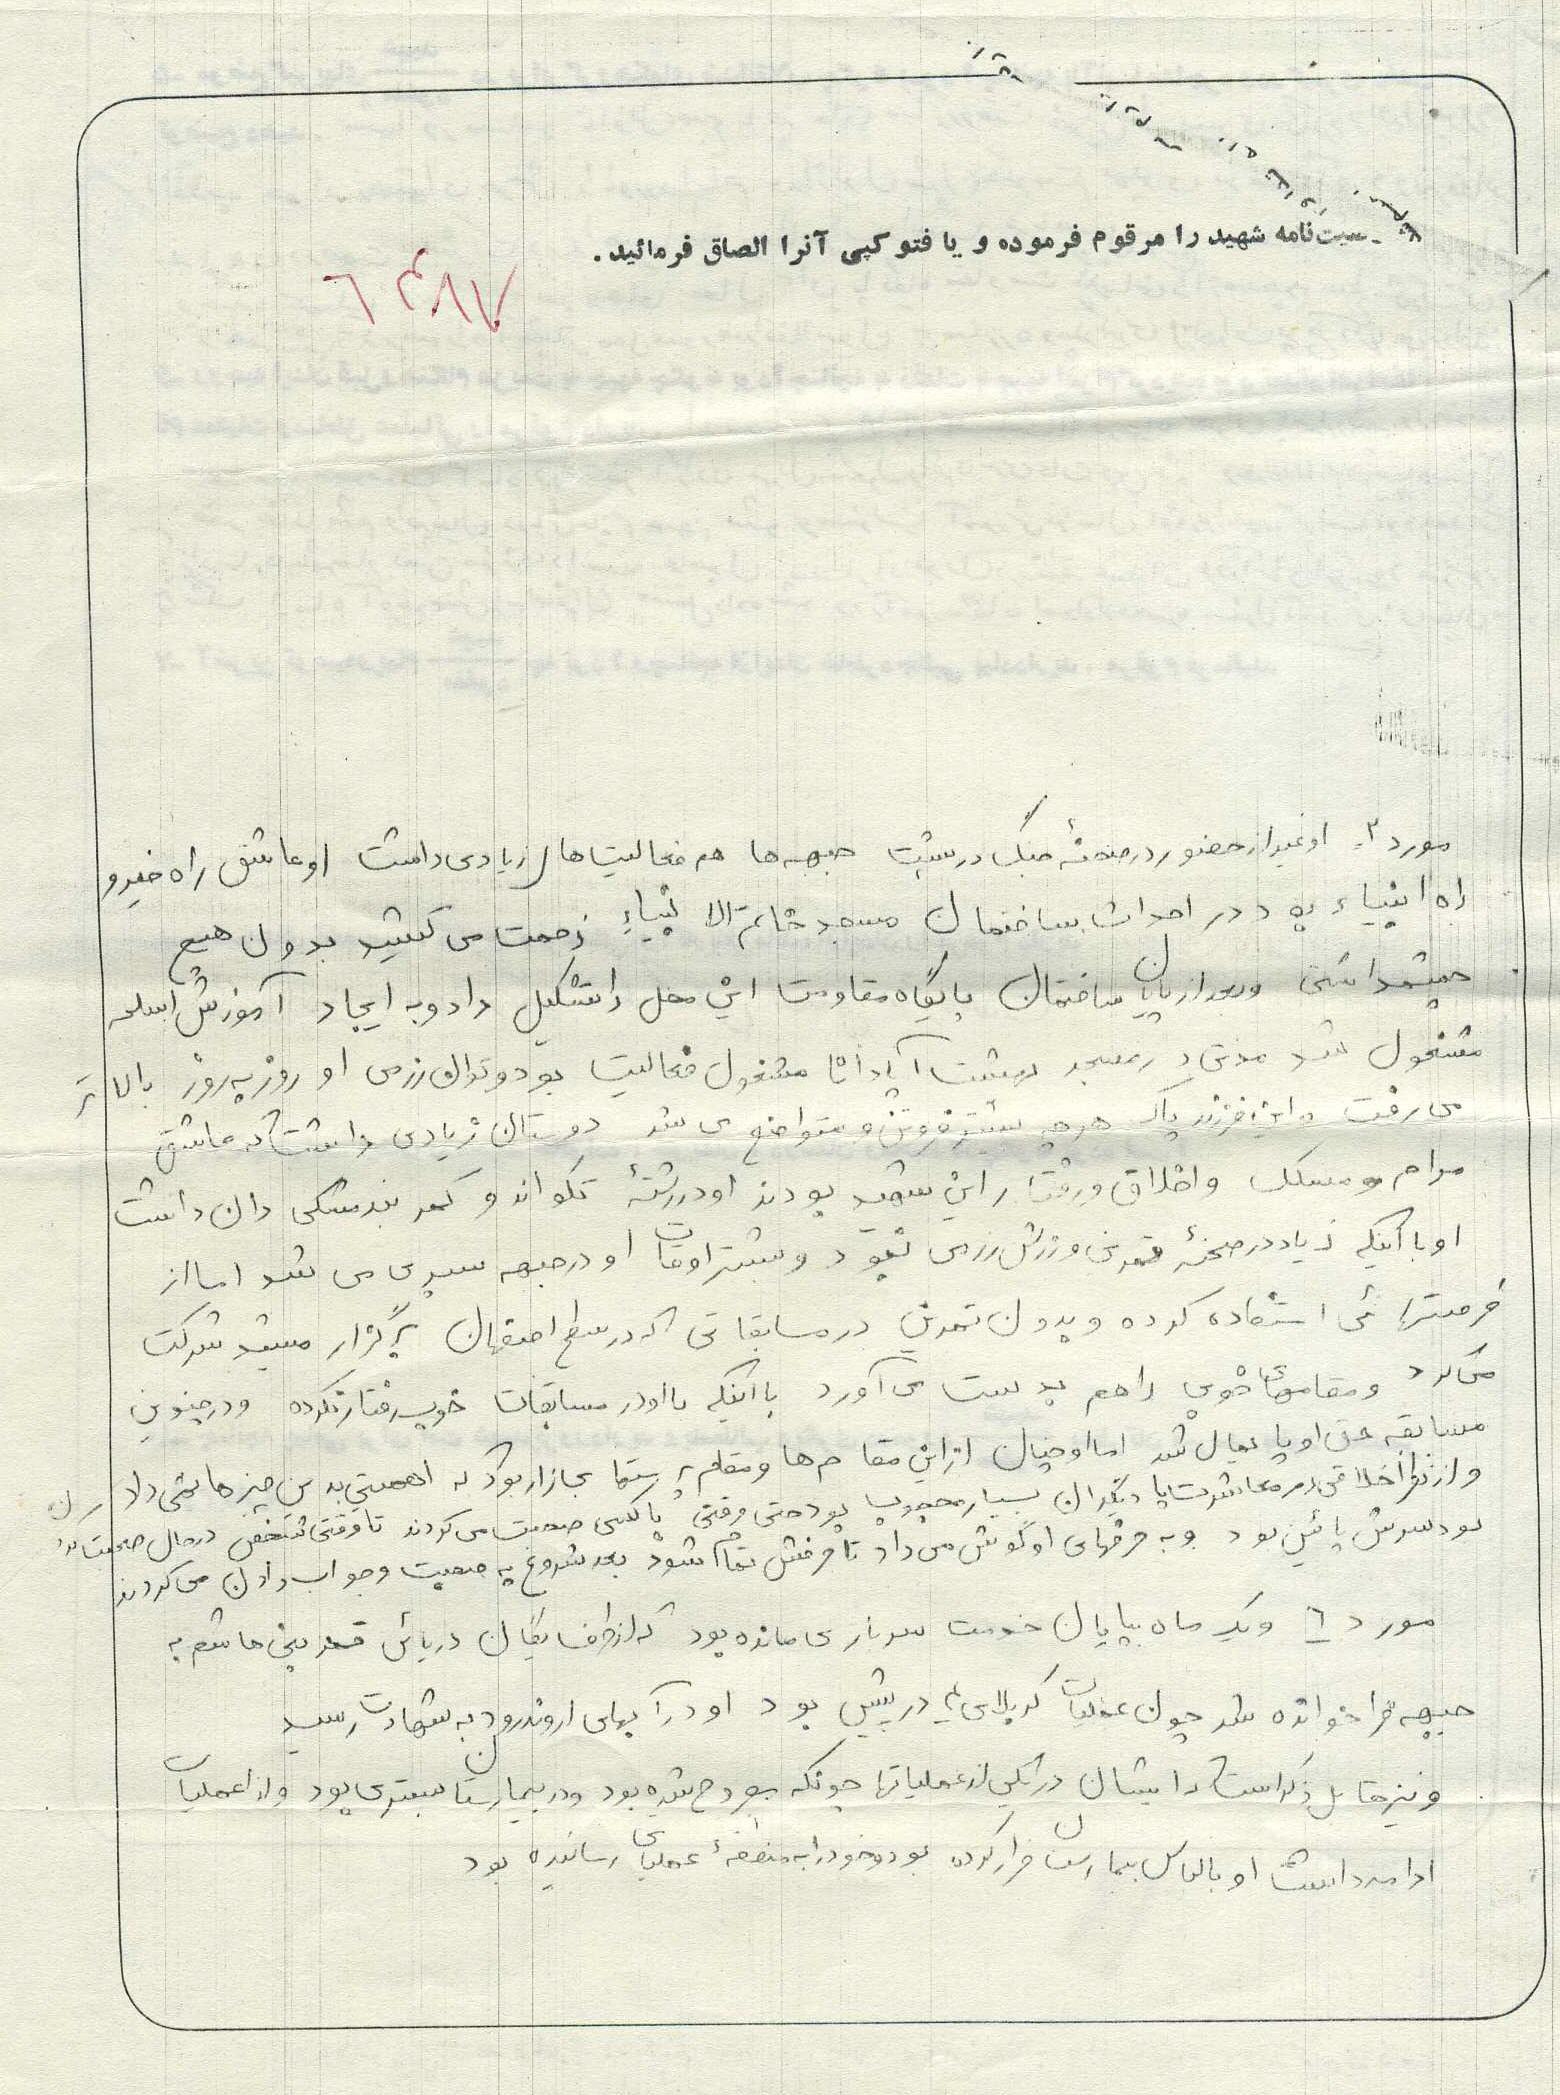 وصیت‌نامه شهید را مرقوم فرموده و یا فتوکپی آنرا الصاق فرمائید.
مورد ۳ـ او غیر از حضور در صحنهٔ جنگ در پشت جبهه‌ها هم فعالیت‌های زیادی داشت او عاشق راه خیر و
راه انبیاء بود در احداث ساختمان مسجد خاتم الانبیاء زحمت می کشید بدون هیچ
چشمداشتی و بعد از پایان ساختمان پایگاه مقاومت این محل را تشکیل داد و به ایجاد آموزش اسلحه
مشغول شد مدتی در مسجد بهشت آباد آنجا مشغول فعالیت بود و توان رزمی او روز به روز بالاتر
می رفت و این فرزند پاک هر چه بیشتر فروتن و متواضع می شد دوستان زیادی داشت که عاشق
مرام و مسلک و اخلاق و رفتار این شهید بودند او در رشتهٔ تکواندو کمربند مشکی دان داشت
او با اینکه زیاد در صحنهٔ تمرین ورزش رزمی نبود و بیشتر اوقات او در جبهه سپری می شد اما از
فرصتهائی استفاده کرده و بدون تمرین در مسابقاتی که در سطح اصفهان برگزار میشد شرکت
می کرد و مقامهای خوبی را هم بدست می آورد با اینکه با او در مسابقات خوب رفتار نکرده و در چنین
مسابقه حق او پایمال شد اما او خیال از این مقام ها و مقام پرستها بیزار بود که اهمیتی به این چیزها نمی داد
و از نظر اخلاقی در معاشرت با دیگران بسیار محجوب بود حتی وقتی با کسی صحبت می کردند تا وقتی شخص در حال صحبت کردن
بود سرش پائین بود و به حرفهای او گوش می داد تا حرفش تمام شود بعد شروع به صحبت و جواب دادن می کردند
مورد ٦ و یک ماه بپایان خدمت سربازی مانده بود که از طرف یگان دریائی قمر بنی هاشم به
جبهه فرا خوانده شد چون عملیات کربلای ۴ در پیش بود او در آبهای اروندرود به شهادت رسید
و نیز قابل ذکر است ایشان در یکی از عملیاتها چونکه مجروح شده بود و در بیمارستان بستری بود و از عملیات
ادامه داشت او با لباس بیمارستان فرار کرده بود و خود را به منطقهٔ عملیاتی رسانیده بود